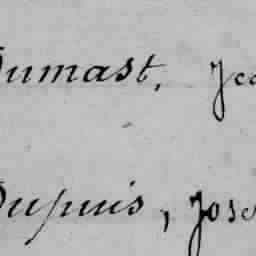 Dumast, Jea
Dupuis, Jose